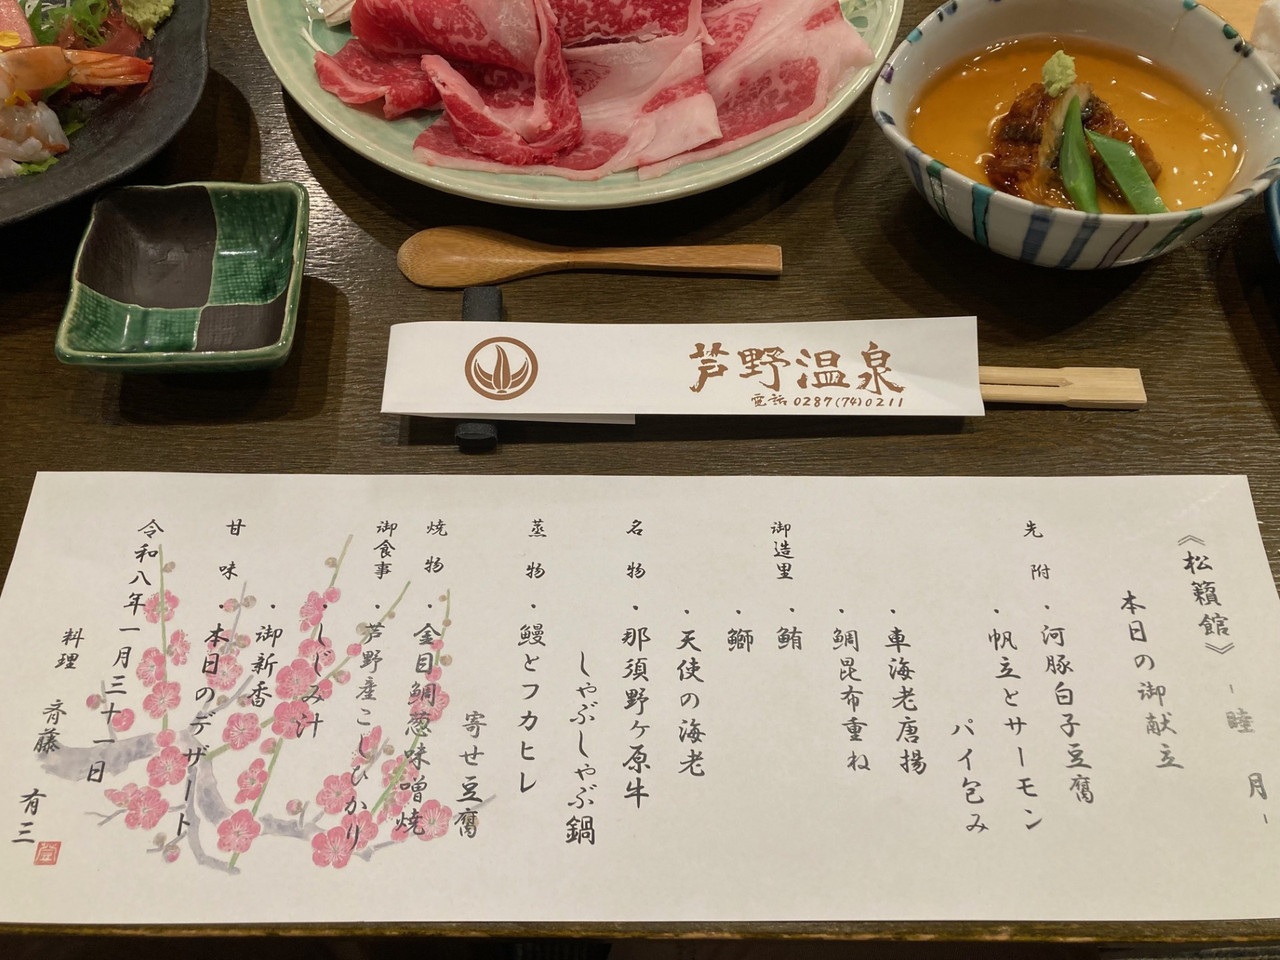 芦野温泉
電話 0287(74)0211
《松籟館》 -睦月-
本日の御献立
先附 ・河豚白子豆腐
・帆立とサーモン
パイ包み
・車海老唐揚
御造里 ・鯛昆布重ね
・鮪
・鰤
・天使の海老
名物 ・那須野ヶ原牛
しゃぶしゃぶ鍋
蒸物 ・鰻とフカヒレ
寄せ豆腐
焼物 ・金目鯛葱味噌焼
御食事 ・芦野産こしひかり
・しじみ汁
・御新香
甘味 ・本日のデザート
令和八年一月三十一日
料理 斉藤 有三